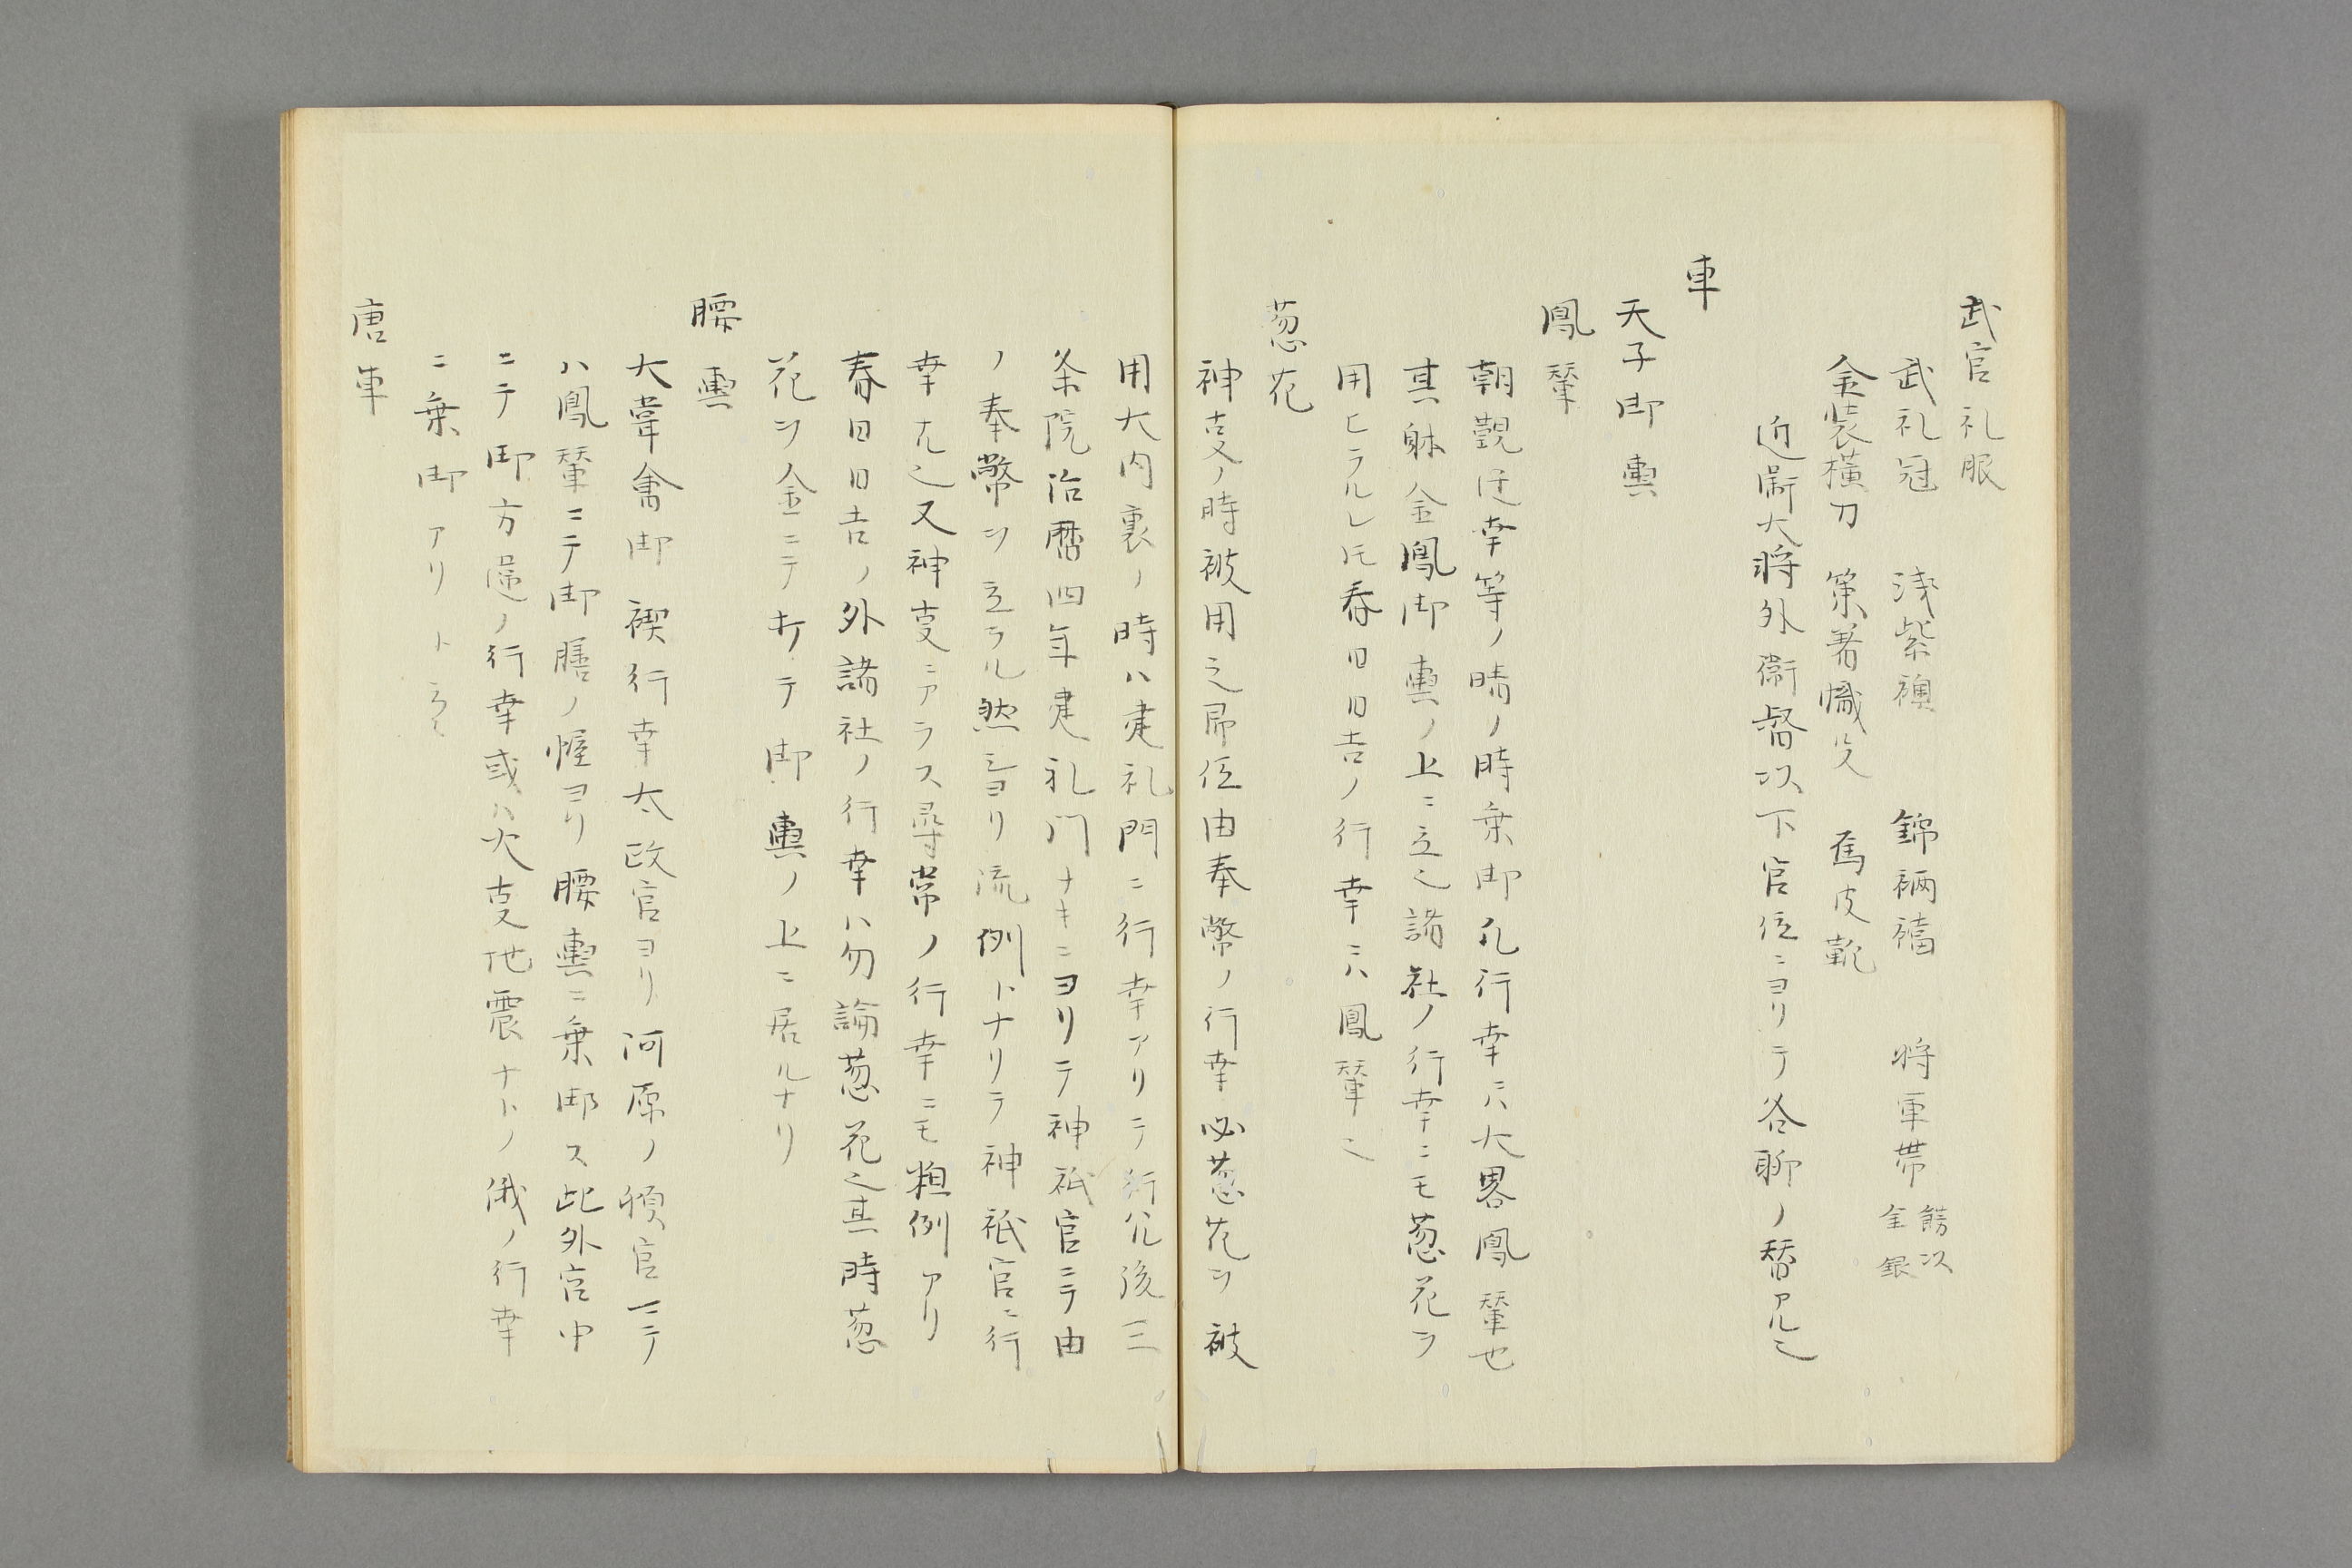 武官礼服
武礼冠　浅紫襖　錦裲襠　将軍帯 餝以金銀
金装横刀　策著幟殳　舄皮靴
近衛大将外衛督以下官位ニヨリテ各聊ノ替アル也
車
天子御輿
鳳輦
朝覲迁幸等ノ晴ノ時乗御凡行幸ニハ大畧鳳輦也
其躰金鳳御輿ノ上ニ立也諸社ノ行幸ニモ葱花ヲ
用ヒラルレ𪜈春日日吉ノ行幸ニハ鳳輦也
葱花
神叓ノ時被用之即位由奉幣ノ行幸必葱花ヲ被
用大内裏ノ時ハ建礼門ニ行幸アリテ行ル後三
条院治暦四年建礼門ナキニヨリテ神祇官ニテ由
ノ奉幣ヲ立ラル然シヨリ流例トナリテ神祇官ニ行
幸ナル也又神叓ニアラス尋常ノ行幸ニモ粗例アリ
春日日吉ノ外諸社ノ行幸ハ勿論葱花也其時葱
花ヲ金ニテキテ御輿ノ上ニ居ルナリ
腰輿
大嘗會御禊行幸太政官ヨリ河原ノ頓宮ニテ
ハ鳳輦ニテ御膳ノ幄ヨリ腰輿ニ乗御ス此外宮中
ニテ御方違ノ行幸或ハ火叓地震ナトノ俄ノ行幸
ニ乗御アリト云々
唐車